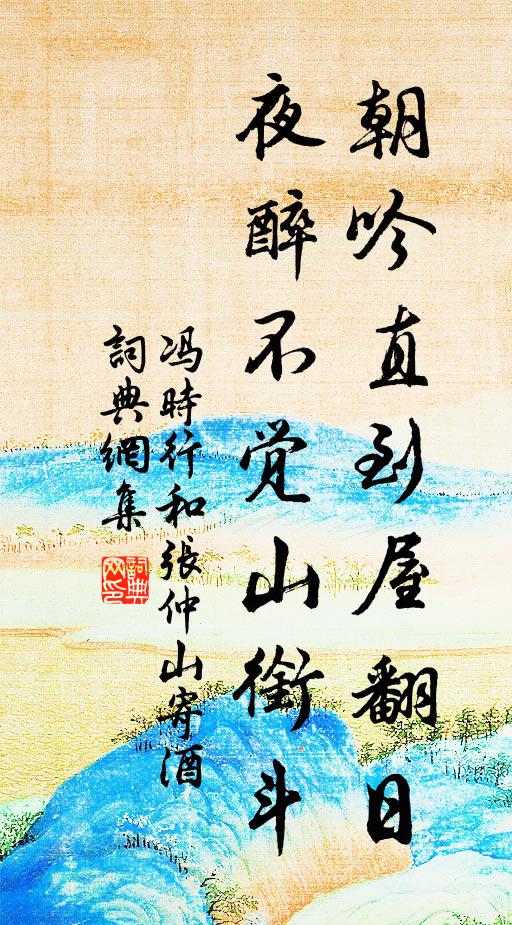 朝吟直到屋翻日
夜醉不觉山銜斗
冯時行和張仲山寄酒
詞典網集
詞典网印